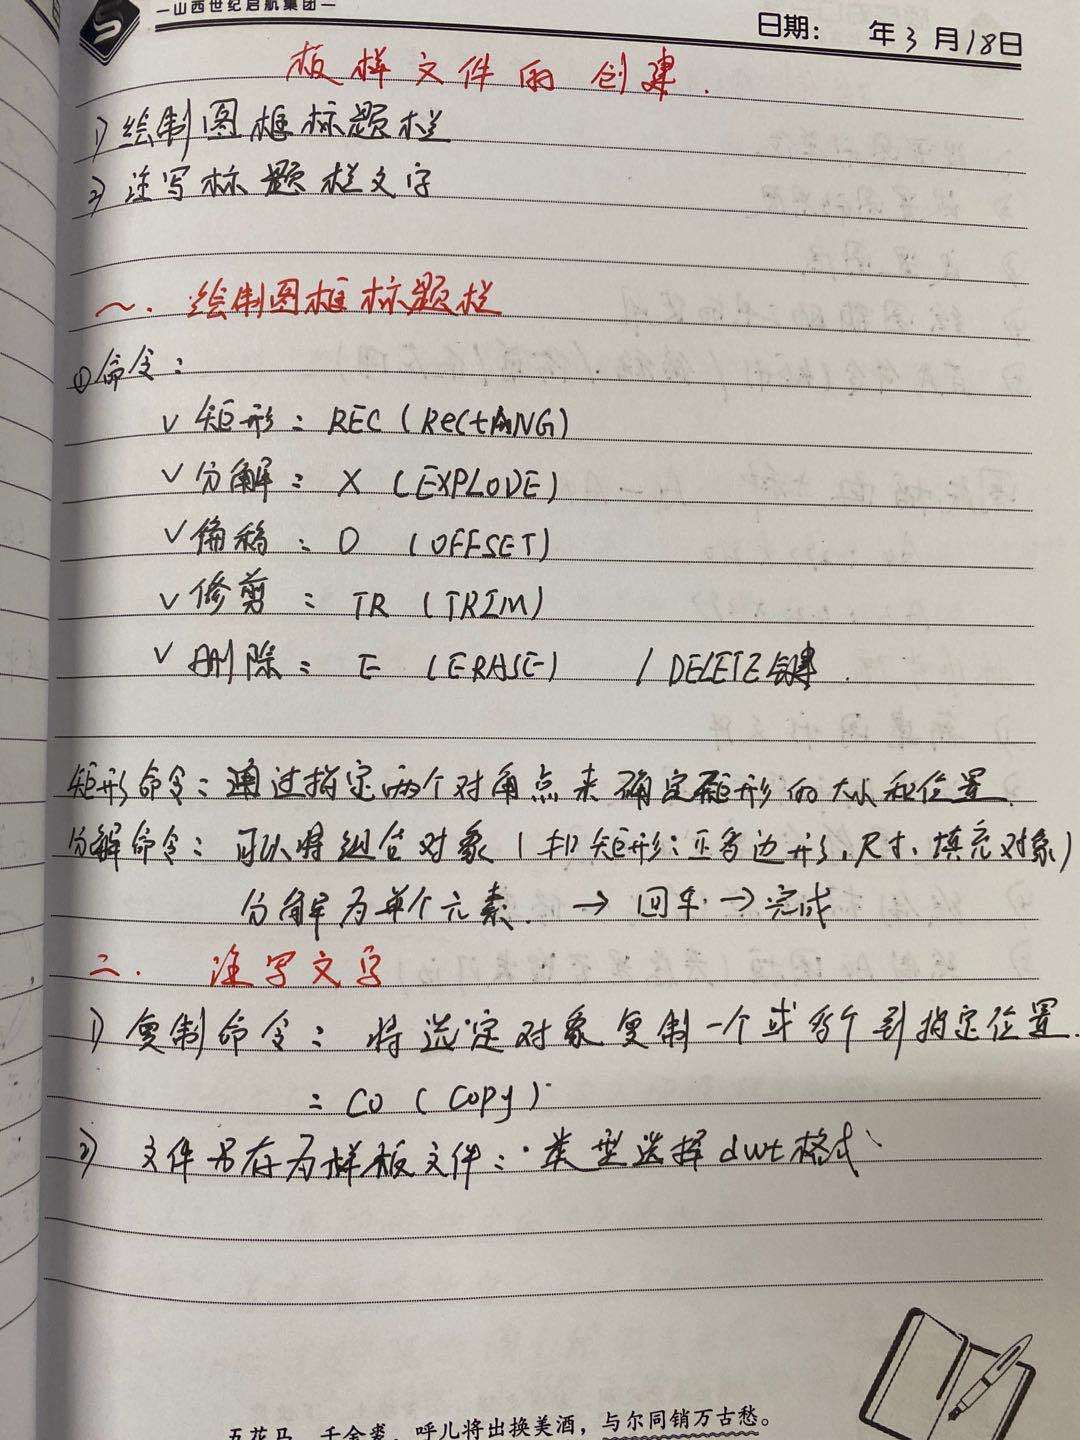 —山西世纪启航集团—
日期： 年3月18日
板样文件的创建.
1) 绘制图框标题栏
2) 注写标题栏文字
一. 绘制图框标题栏
①命令：
√ 矩形：REC (RectANG)
√ 分解：X (EXPLODE)
√ 偏移：O (OFFSET)
√ 修剪：TR (TRIM)
√ 删除：E (ERASE) / DELETE键.
矩形命令：通过指定两个对角点来确定矩形的大小和位置.
分解命令：可以将组合对象(如矩形；正多边形,尺寸,填充对象)
分解为单个元素. → 回车 → 完成
二. 注写文字
1) 复制命令：将选定对象复制一个或多个到指定位置.
：CO (Copy)
2) 文件另存为样板文件：类型选择dwt格式
五花马，千金裘，呼儿将出换美酒，与尔同销万古愁。